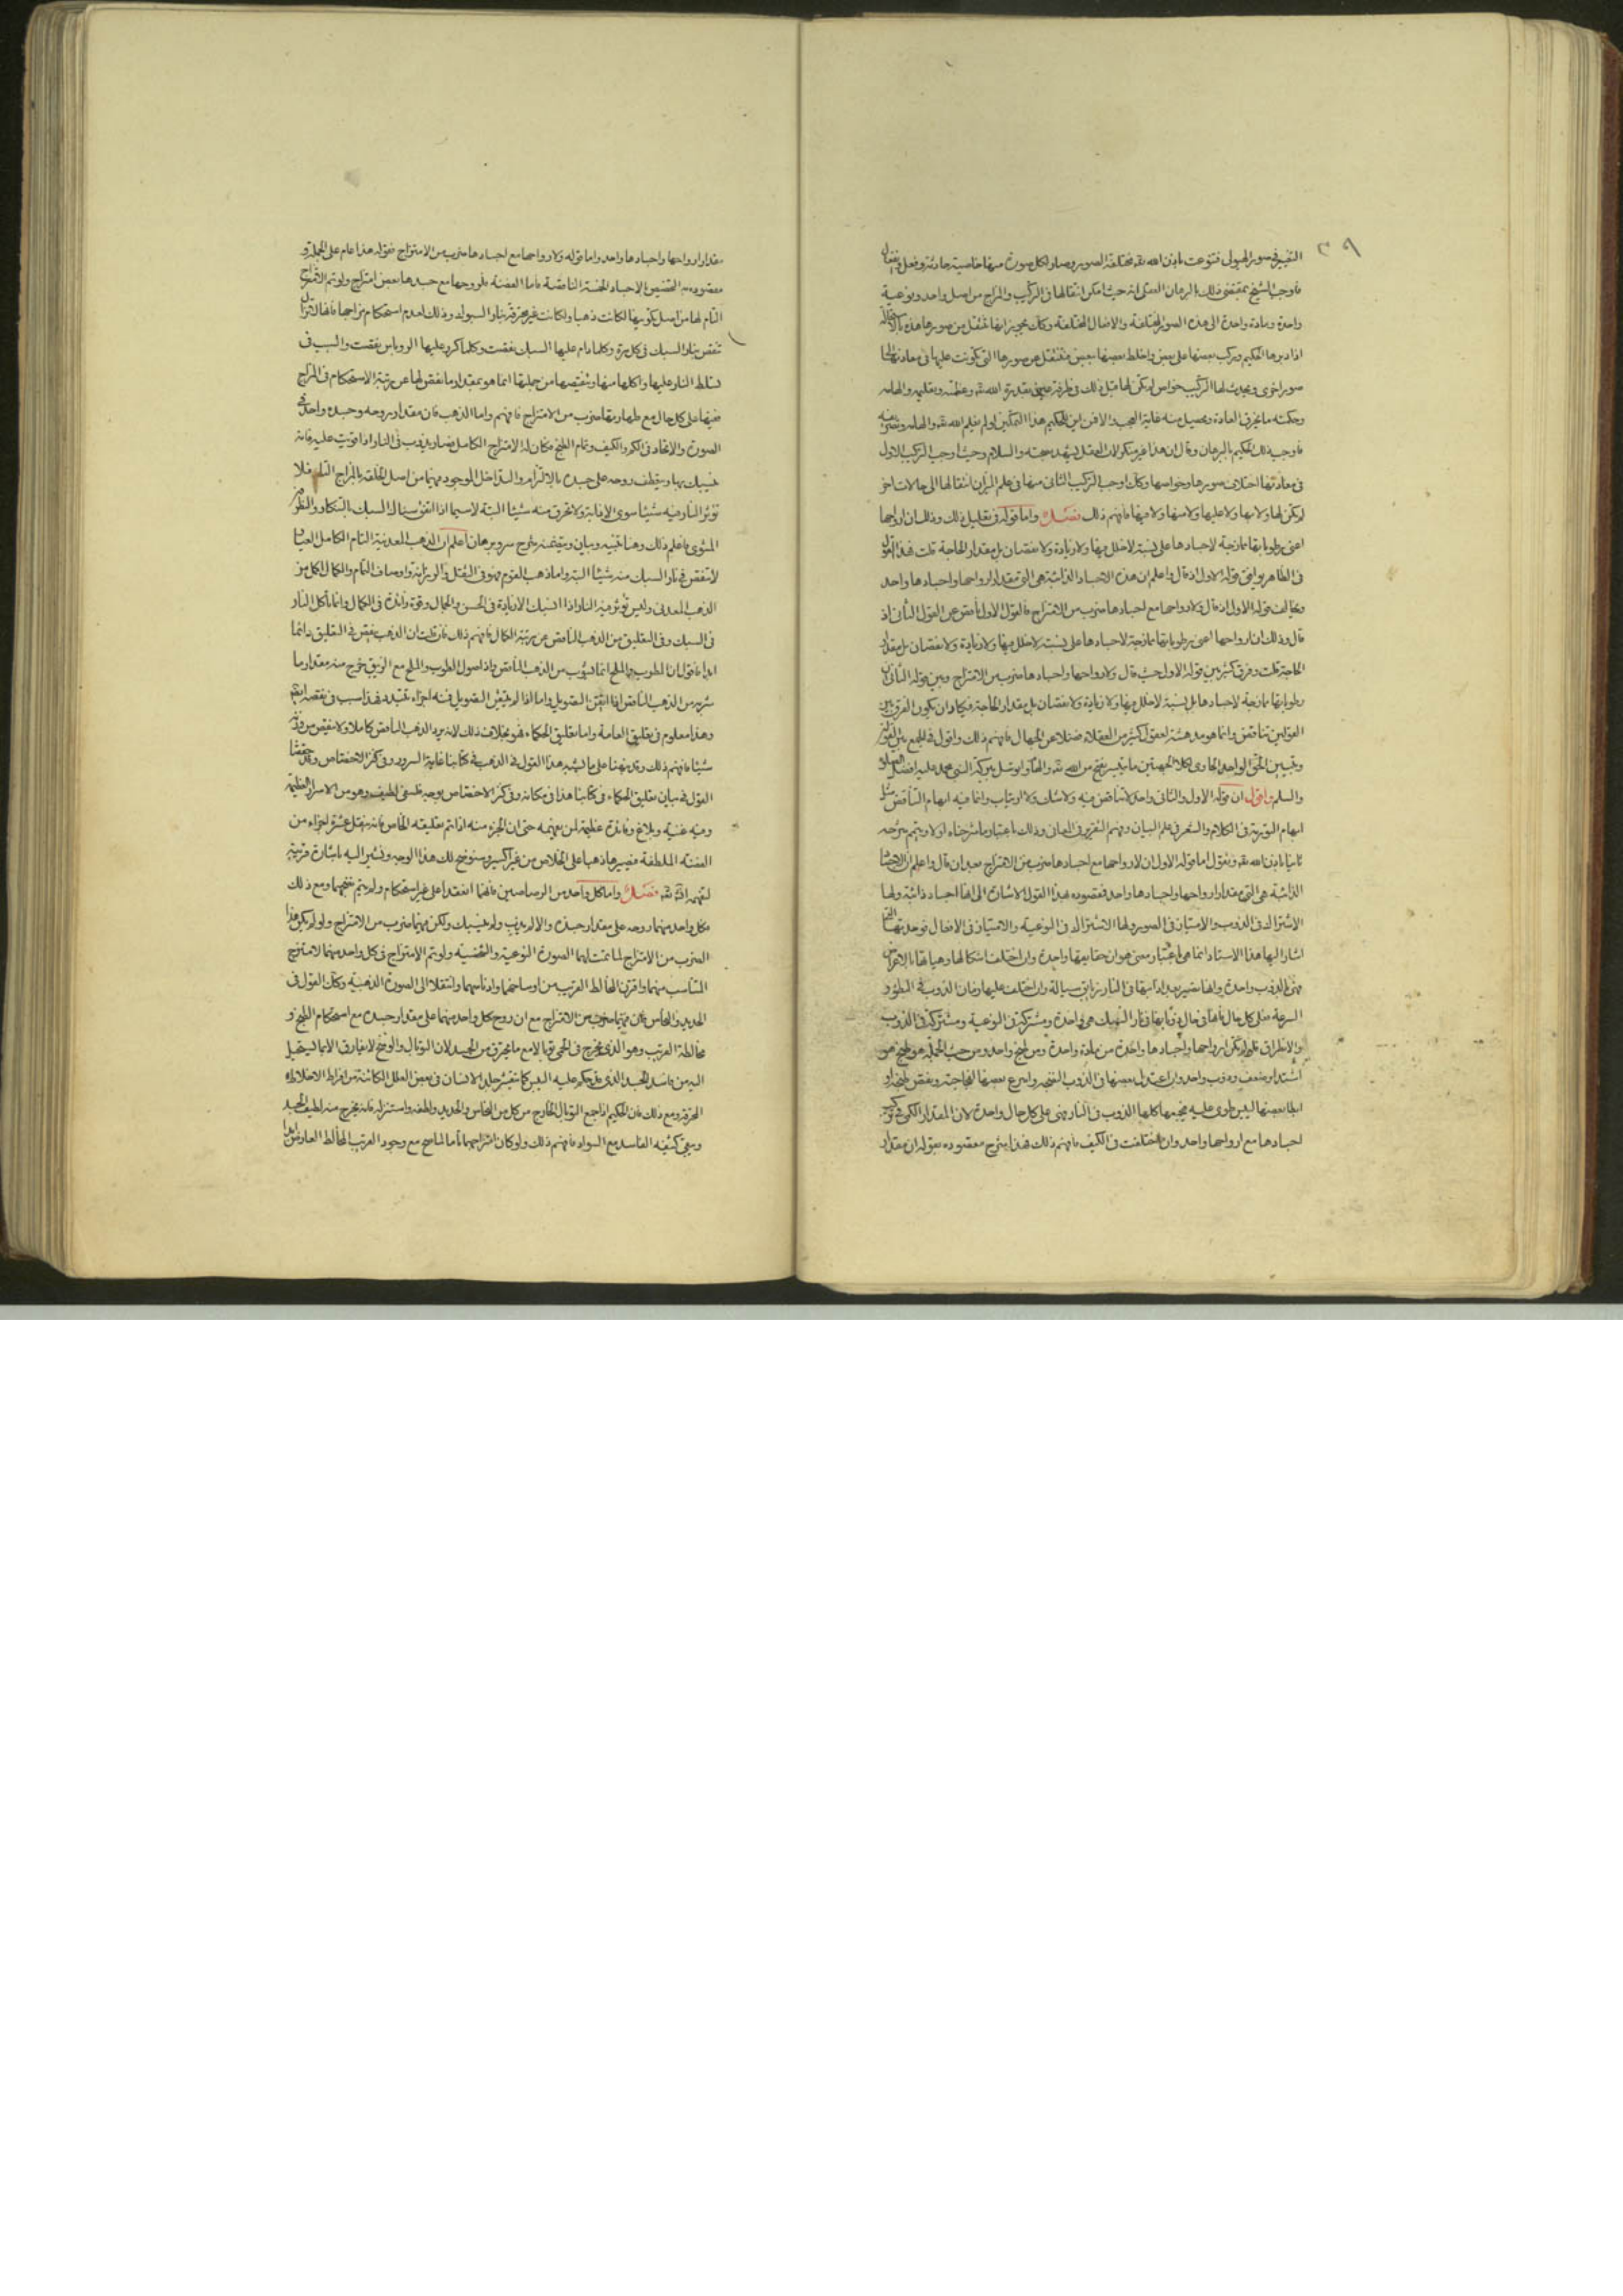 ٣٩
التغيير في صور الهيولى فتنوعت باذن الله تع مختلفة الصور وصار لكل صورة منها خاصية حادثة وفعل
فاوجب الشيخ بمقتضى ذلك بالبرهان العقلى انه حيث امكن انتقالها في التركيب والمزاج من اصل واحد ونوعية
واحدة ومادة واحدة الى هذه الصور المختلفة والافعال المختلفة وكان يجوز ايضا تنتقل من صورها هذه بالاستحالة
اذا دبرها الحكيم وركب بعضها على بعض واخلط بعضها ببعض فتنتقل عن صورها التى تكونت عليها في معادنها الى
صور اخرى ويحدث لها التركيب خواص لم تكن لها قبل ذلك بقدرة الله تع وعظمته وتعليمه والهامه
وحكمته ما يخرق العادة ويحصل منه غاية العجب والا فمن اين للحكيم هذا التمكين لو لم يعلم الله تع والهامه
فاوجب ذلك الحكيم بالبرهان وقال ان هذا غير منكر لان العقل يشهد بصحته والسلام وحيث اوجب التركيب الاول
في معادنها اختلاف صورها وخواصها وكان اوجب التركيب الثانى منها في علم الميزان انتقالها الى حالات اخر
لم تكن لها ولا بها ولا عليها ولا منها ولا فيها فافهم ذلك فصل واما قوله في تعليل ذلك وذلك ان ارواحها
اعنى رطوباتها مازجة لاجسادها على نسبة لا خلل فيها ولا زيادة ولا نقصان بل مقدار الحاجة قلت فهذا القول
في الظاهر يوافق قوله الاول اذ قال واعلم ان هذه الاجساد الذائبة هي التى مقدار ارواحها واجسادها واحد
ويخالف قوله الاول اذ قال ولارواحها مع اجسادها ضرب من الامتزاج فالقول الاول ناقص عن القول الثانى اذ
قال وذلك ان ارواحها اعنى رطوباتها مازجة لاجسادها على نسبة لا خلل فيها ولا زيادة ولا نقصان بل مقدار
الحاجة قلت وفرق كثير بين قوله الاول حيث قال ولارواحها واجسادها ضرب من الامتزاج وبين قوله الثانى ان
رطوباتها مازجة لاجسادها بل نسبة لا خلل فيها ولا زيادة ولا نقصان بل مقدار الحاجة فيكاد ان يكون الفرق بين
القولين تناقض وانما هو مدهشة لعقول كثير من العقلاء فضلا عن الجهال فافهم ذلك واقول في الجمع بين القولين
وتبيين الحق الواحد الحاوى لكلا الجهتين ما يتيسر بفتح من الله تع والهام وتوسل ببركة النبي محمد عليه افضل الصلاة
والسلم واقول ان قوله الاول والثانى واحد لا تناقض فيه ولا شك ولا ارتياب وانما فيه ايهام التناقض مثل
ايهام التورية في الكلام والشعر في علم البيان وفهم التقرير في المعانى وذلك باعتبار ما شرحناه اولا ويتم شرحه
ثانيا باذن الله تع ونقول اما قوله الاول ان لارواحها مع اجسادها ضرب من الامتزاج بعد ان قال واعلم ان الاجساد
الذائبة هي التى مقدار ارواحها واجسادها واحد فمقصوده بهذا القول الاشارة الى انها اجساد ذائبة ولها
الاشتراك في الذوب والامتياز في الصور ولها الاشتراك في النوعية والامتياز في الافعال فوحدتها التى
اشار اليها هذا الاستاد انما هي باعتبار معنى هو ان حقايقها واحدة وان اختلفت اشكالها وهيأتها بالاعراض
فهى بالذوب واحدة وانها تصير بعد اذابتها في النار زيابق سيالة وان اختلف عليها زمان الذوب في البطؤ و
السرعة فعلى كل حال فانها في حال ذوبانها في نار السبك هي واحدة ومشتركة في النوعية ومشتركة في الذوب
والانطراق فلو لم تكن ارواحها واجسادها واحدة من مادة واحدة ومن طبخ واحد ومن حيث الجملة هو طبخ هو
اشتد او ضعف وذوب واحد وان اعتدل بعضها في الذوب لنضجه واسرع بعضها لفجاجته ونقص طبخه او
ابطا بعضها ليبس طرى عليه فجميعها كلها الذوب في النار فهى على كل حال واحدة لان المقدار الكمى في تركيب
اجسادها مع ارواحها واحد وان اختلفت في الكيف فافهم ذلك فهذا شرح مقصوده بقوله ان مقدار
مقدار ارواحها واجسادها واحد واما قوله ولارواحها مع اجسادها ضرب من الامتزاج فقوله هذا عام على الجملة و
مقصوده به التخصيص الاجساد الخمسة الناقصة فاما الفضة فلروحها مع جسدها بعض امتزاج ولو تم الامتزاج
التام لها من اصل تكوينها لكانت ذهبا ولكانت غير محترقة بنار السبوك وذلك لعدم استحكام مزاجها فانها لا تزال
تنقص بنار السبك في كل مرة وكلما دام عليها السبك نقصت وكلما كرر عليها الروباص نقصت والسبب في
تسلط النار عليها واكلها منها وتنقيصها من جملتها انما هو بمقدار ما نقص لها عن مرتبة الاستحكام في المزاج
ففيها على كل حال مع طهارتها ضرب من الامتزاج فافهم واما الذهب فان مقدار روحه وجسده واحد في
الصورة والاتحاد في الكم والكيف وتمام الطبخ فكان له الامتزاج الكامل فصار يذوب في النار اذا قويت عليه فانه
ينسبك بها وينعطف روحه على جسده بالالتزام والتداخل الموجود فيهما من اصل الخلقة بالمزاج التام فلا
تؤثر النار فيه شيئا سوى الاذابة ولا تحرق منه شيئا البتة لا سيما اذا اتفق سباك السبك بالتنكار والنطرون
المشوى فاعلم ذلك وهنا تنبيه وبيان وبتضمنه شرح سر وبرهان اعلم ان الذهب المعدنية التام الكامل العيار
لا تنقص في نار السبك منه شيئا البتة واما ذهب القوم فهو في الثقل والرزانة واوصاف التمام والكمال اكمل من
الذهب المعدنى وليس تؤثر فيه النار اذا انسبك الا زيادة في الحسن والجمال وقوة زائدة في الكمال وانما تأكل النار
في السبك وفي التعليق من الذهب الناقص عن مرتبة الكمال فافهم ذلك فان قلت ان الذهب ينقص في التعليق دائما
ابدا فاقول ان الطوب والملح انما يشرب من الذهب الناقص واذا صول الطوب والملح مع الزيبق خرج منه مقدار ما
شربه من الذهب الناقص اذا اتقن التصويل واما اذا لم يتقن التصويل فمنه اجزاء تتبدد فهذا سبب في نقصه ايضا
وهذا معلوم في تعليق العامة واما تعليق الحكماء فهو بخلاف ذلك لانه يرد الذهب الناقص كاملا ولا ينقص من وزنه
شيئا فافهم ذلك وقد نبهنا على ما يشبه هذا القول في الذهب في كتابنا غاية السرور وفي كنز الاختصاص وقد حققنا
القول في بيان تعليق الحكماء في كتابنا هذا في مكانه وفي كنز الاختصاص بوجه فلسفى لطيف وهو من الاسرار العظيمة
وفيه غنية وبلاغ وفائدة عظيمة لمن يفهمه حتى ان الجزء منه اذا تم تعليقه الخاص فانه ينقل عشرة اجزاء من
الفضة الملطفة فيصيرها ذهبا على الخلاص من غير اكسير وسنوضح لك هذا الوجه ونشير اليه باشارة قريبة
لتفهم ان شاء الله تع فصل واما كل واحد من الرصاصين فانهما انعقدا على غير استحكام ولم يتم نضجهما ومع ذلك
فكل واحد منهما روحه على مقدار جسده والا لم يذب ولم ينسبك ولكن فيهما ضرب من الامتزاج ولو لم يكن هذا
الضرب من الامتزاج لما تمت لهما الصورة النوعية والشخصية ولو تم الامتزاج في كل واحد منهما لامتزج
المتناسب منهما وافترق المخالط الغريب من اوساخهما وادناسهما وانتقلا الى الصورة الذهبية وكان القول في
الحديد والنحاس فان فيهما ضرب من الامتزاج مع ان روح كل واحد منهما على مقدار جسده مع استحكام الطبخ و
مخالطة الغريب وهو الذى يخرج في الحمى توبالا مع ما يحترق من الجسد لان التوبال والوسخ لا يفارق الا بما يستحيل
اليه من فاسد الجسد الذى قد حكم عليه اليبس كما يتقشر جلد الانسان في بعض العلل الكائنة من افراط الاخلاط
المحرقة ومع ذلك فان الحكيم اذا جمع التوبال الخارج من كل من النحاس والحديد ولطفه واستنزله فانه يخرج منه لطيف الجسد
ويبقى كثيفه الفاسد مع السواد فافهم ذلك ولو كان امتزاجهما تاما لما صح مع وجود الغريب المخالط العارض لهما